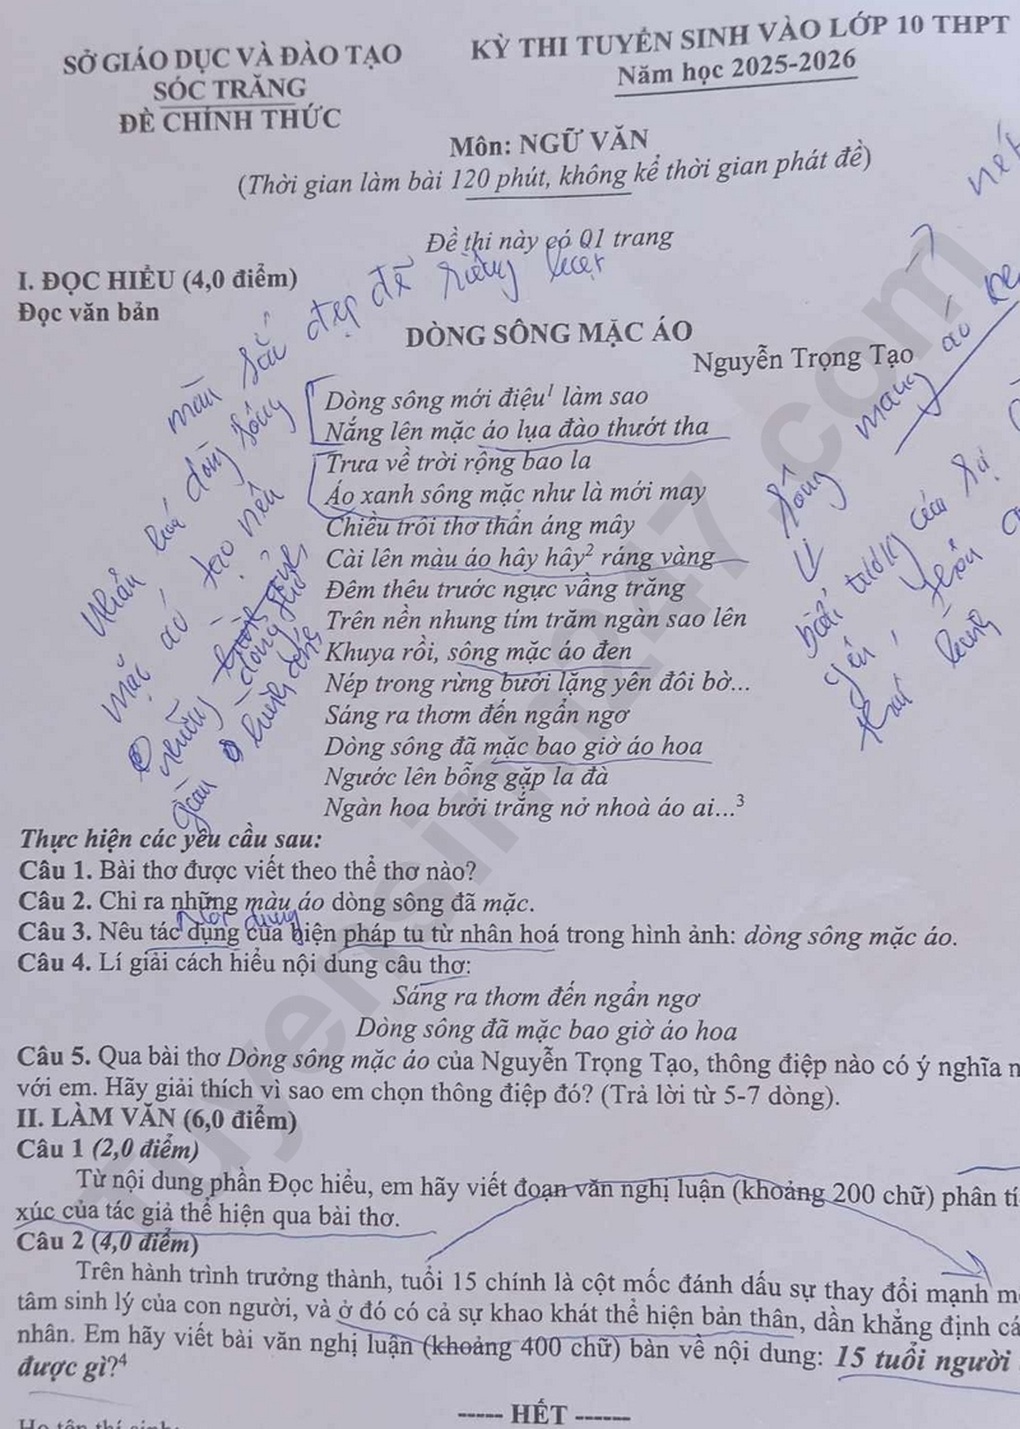 SỞ GIÁO DỤC VÀ ĐÀO TẠO
SÓC TRĂNG
ĐỀ CHÍNH THỨC
KỲ THI TUYỂN SINH VÀO LỚP 10 THPT
Năm học 2025-2026
Môn: NGỮ VĂN
(Thời gian làm bài 120 phút, không kể thời gian phát đề)
Đề thi này có 01 trang
I. ĐỌC HIỂU (4,0 điểm)
Đọc văn bản
DÒNG SÔNG MẶC ÁO
Nguyễn Trọng Tạo
Dòng sông mới điệu¹ làm sao
Nắng lên mặc áo lụa đào thướt tha
Trưa về trời rộng bao la
Áo xanh sông mặc như là mới may
Chiều trôi thơ thẩn áng mây
Cài lên màu áo hây hây² ráng vàng
Đêm thêu trước ngực vầng trăng
Trên nền nhung tím trăm ngàn sao lên
Khuya rồi, sông mặc áo đen
Nép trong rừng bưởi lặng yên đôi bờ...
Sáng ra thơm đến ngẩn ngơ
Dòng sông đã mặc bao giờ áo hoa
Ngước lên bỗng gặp la đà
Ngàn hoa bưởi trắng nở nhoà áo ai...³
Thực hiện các yêu cầu sau:
Câu 1. Bài thơ được viết theo thể thơ nào?
Câu 2. Chỉ ra những màu áo dòng sông đã mặc.
Nội dung
Câu 3. Nêu tác dụng của biện pháp tu từ nhân hoá trong hình ảnh: dòng sông mặc áo.
Câu 4. Lí giải cách hiểu nội dung câu thơ:
Sáng ra thơm đến ngẩn ngơ
Dòng sông đã mặc bao giờ áo hoa
Câu 5. Qua bài thơ Dòng sông mặc áo của Nguyễn Trọng Tạo, thông điệp nào có ý nghĩa
với em. Hãy giải thích vì sao em chọn thông điệp đó? (Trả lời từ 5-7 dòng).
II. LÀM VĂN (6,0 điểm)
Câu 1 (2,0 điểm)
Từ nội dung phần Đọc hiểu, em hãy viết đoạn văn nghị luận (khoảng 200 chữ) phân tí
xúc của tác giả thể hiện qua bài thơ.
Câu 2 (4,0 điểm)
Trên hành trình trưởng thành, tuổi 15 chính là cột mốc đánh dấu sự thay đổi mạnh m
tâm sinh lý của con người, và ở đó có cả sự khao khát thể hiện bản thân, dần khẳng định cá
nhân. Em hãy viết bài văn nghị luận (khoảng 400 chữ) bàn về nội dung: 15 tuổi người
được gì?⁴
----- HẾT ------
Tuyensinh247.com